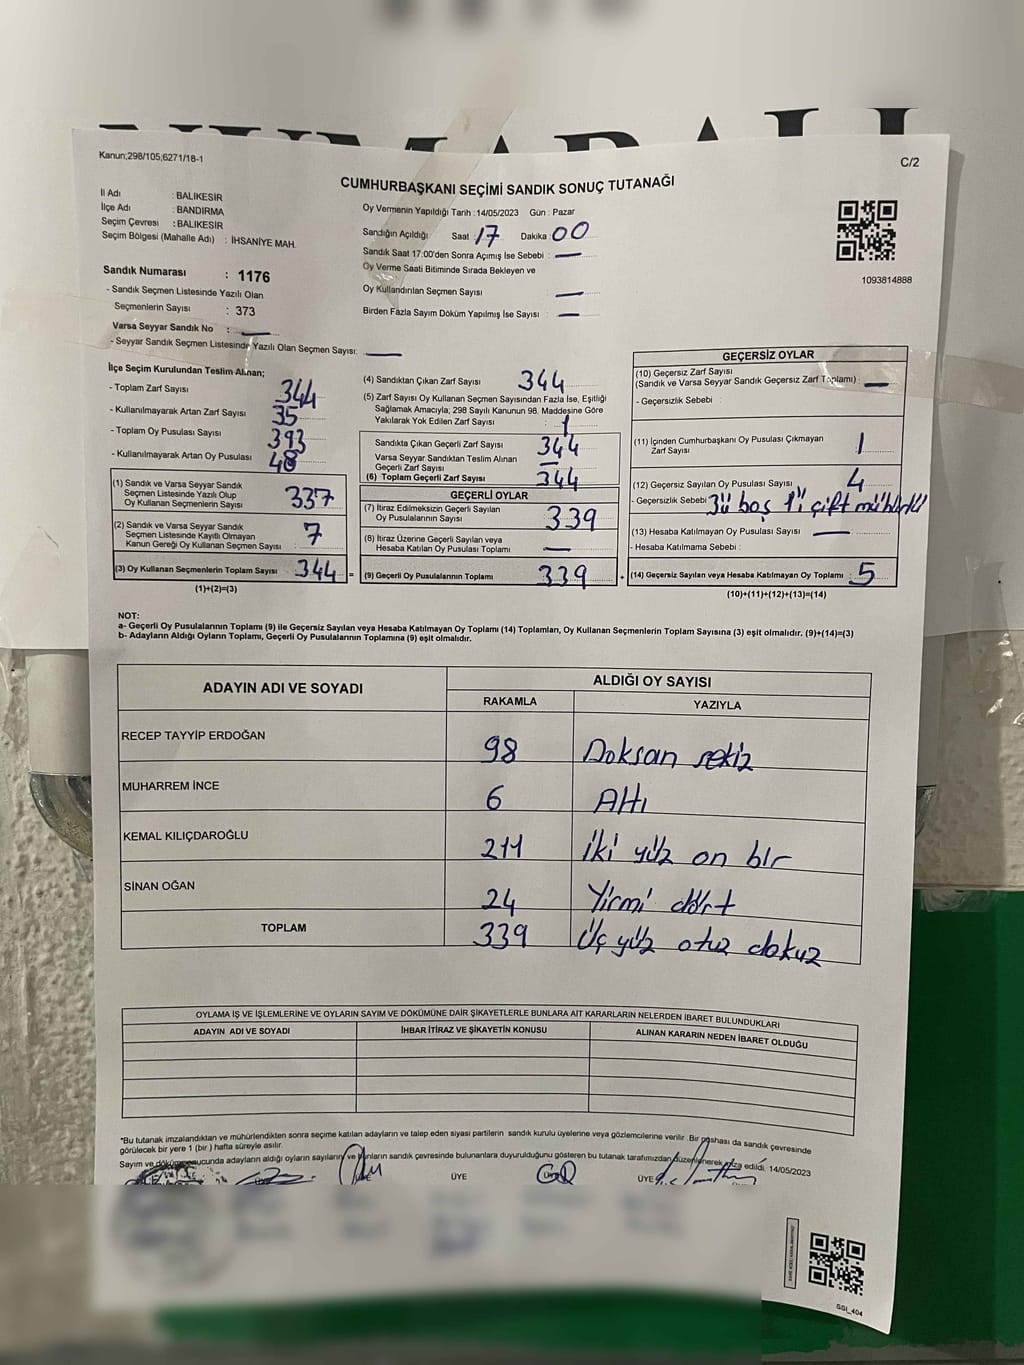 NUMARALI
Kanun;298/105,6271/18-1
C/2
CUMHURBAŞKANI SEÇİMİ SANDIK SONUÇ TUTANAĞI
İl Adı : BALIKESİR
İlçe Adı : BANDIRMA
Seçim Çevresi : BALIKESİR
Seçim Bölgesi (Mahalle Adı) : İHSANİYE MAH.
Oy Vermenin Yapıldığı Tarih :14/05/2023 Gün : Pazar
Sandığın Açıldığı Saat : 17 Dakika : 00
Sandık Saat 17:00'den Sonra Açımış İse Sebebi : —
Oy Verme Saati Bitiminde Sırada Bekleyen ve
Oy Kullandırılan Seçmen Sayısı : —
Birden Fazla Sayım Döküm Yapılmış İse Sayısı : —
1093814888
Sandık Numarası : 1176
- Sandık Seçmen Listesinde Yazılı Olan
Seçmenlerin Sayısı : 373
Varsa Seyyar Sandık No : —
- Seyyar Sandık Seçmen Listesinde Yazılı Olan Seçmen Sayısı: —
İlçe Seçim Kurulundan Teslim Alınan;
- Toplam Zarf Sayısı 344
- Kullanılmayarak Artan Zarf Sayısı 35
- Toplam Oy Pusulası Sayısı 393
- Kullanılmayarak Artan Oy Pusulası 48
(1) Sandık ve Varsa Seyyar Sandık
Seçmen Listesinde Yazılı Olup
Oy Kullanan Seçmenlerin Sayısı 337
(2) Sandık ve Varsa Seyyar Sandık
Seçmen Listesinde Kayıtlı Olmayan
Kanun Gereği Oy Kullanan Seçmen Sayısı 7
(3) Oy Kullanan Seçmenlerin Toplam Sayısı 344 =
(1)+(2)=(3)
(4) Sandıktan Çıkan Zarf Sayısı 344
(5) Zarf Sayısı Oy Kullanan Seçmen Sayısından Fazla İse, Eşitliği
Sağlamak Amacıyla; 298 Sayılı Kanunun 98. Maddesine Göre
Yakılarak Yok Edilen Zarf Sayısı : 1
Sandıkta Çıkan Geçerli Zarf Sayısı 344
Varsa Seyyar Sandıktan Teslim Alınan
Geçerli Zarf Sayısı —
(6) Toplam Geçerli Zarf Sayısı 344
GEÇERLİ OYLAR
(7) İtiraz Edilmeksizin Geçerli Sayılan
Oy Pusulalarının Sayısı 339
(8) İtiraz Üzerine Geçerli Sayılan veya
Hesaba Katılan Oy Pusulası Toplamı —
(9) Geçerli Oy Pusulalarının Toplamı 339 +
GEÇERSİZ OYLAR
(10) Geçersiz Zarf Sayısı
(Sandık ve Varsa Seyyar Sandık Geçersiz Zarf Toplamı) : —
- Geçersizlik Sebebi :
(11) İçinden Cumhurbaşkanı Oy Pusulası Çıkmayan
Zarf Sayısı 1
(12) Geçersiz Sayılan Oy Pusulası Sayısı 4
- Geçersizlik Sebebi 3ü boş 1'i çift mühürlü
(13) Hesaba Katılmayan Oy Pusulası Sayısı : —
- Hesaba Katılmama Sebebi :
(14) Geçersiz Sayılan veya Hesaba Katılmayan Oy Toplamı : 5
(10)+(11)+(12)+(13)=(14)
NOT:
a- Geçerli Oy Pusulalarının Toplamı (9) ile Geçersiz Sayılan veya Hesaba Katılmayan Oy Toplamı (14) Toplamları, Oy Kullanan Seçmenlerin Toplam Sayısına (3) eşit olmalıdır. (9)+(14)=(3)
b- Adayların Aldığı Oyların Toplamı, Geçerli Oy Pusulalarının Toplamına (9) eşit olmalıdır.
ADAYIN ADI VE SOYADI
ALDIĞI OY SAYISI
RAKAMLA YAZIYLA
RECEP TAYYİP ERDOĞAN 98 Doksan sekiz
MUHARREM İNCE 6 Altı
KEMAL KILIÇDAROĞLU 211 İki yüz on bir
SİNAN OĞAN 24 Yirmi dört
TOPLAM 339 Üç yüz otuz dokuz
OYLAMA İŞ VE İŞLEMLERİNE VE OYLARIN SAYIM VE DÖKÜMÜNE DAİR ŞİKAYETLERLE BUNLARA AİT KARARLARIN NELERDEN İBARET BULUNDUKLARI
ADAYIN ADI VE SOYADI İHBAR İTİRAZ VE ŞİKAYETİN KONUSU ALINAN KARARIN NEDEN İBARET OLDUĞU
*Bu tutanak imzalandıktan ve mühürlendikten sonra seçime katılan adayların ve talep eden siyasi partilerin sandık kurulu üyelerine veya gözlemcilerine verilir. Bir nüshası da sandık çevresinde
görülecek bir yere 1 (bir) hafta süreyle asılır.
Sayım ve dökümü sonucunda adayların aldığı oyların sayıların ve bunların sandık çevresinde bulunanlara duyurulduğunu gösteren bu tutanak tarafımızdan düzenlenerek imza edildi. 14/05/2023
ÜYE ÜYE
SSI_404